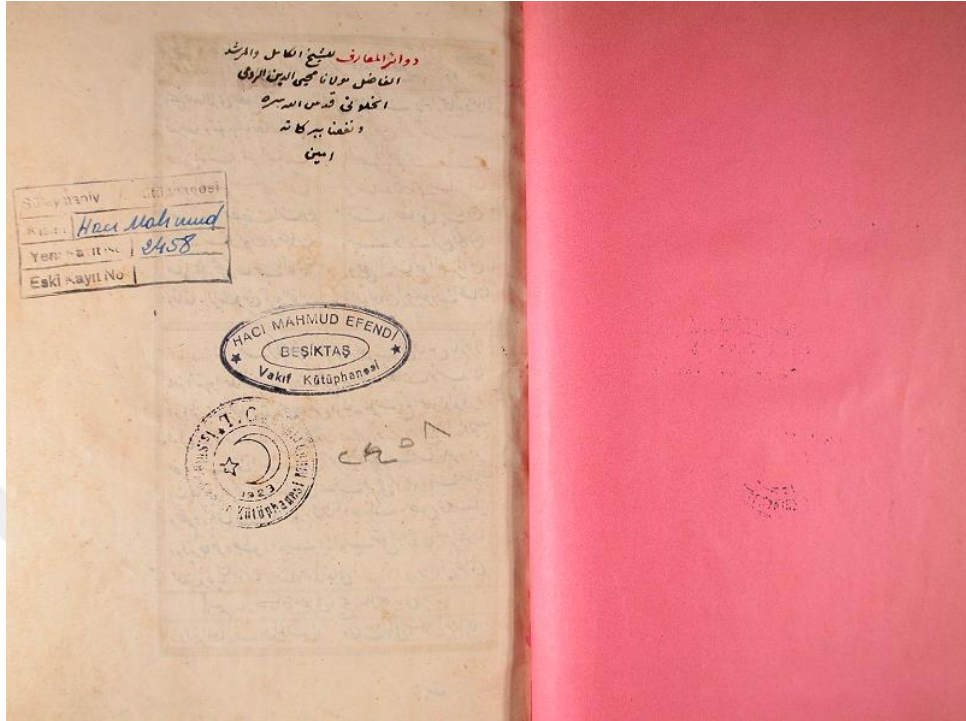 دوائر المعارف للشيخ الكامل والمرشد
الفاضل مولانا محيي الدين الرومي
الخلوتي قدس الله سره
ونفعنا ببركاته
امين
Kütüphanesi
Hacı Mahmud
Yeni Kayıt No 2458
Eski Kayıt No
HACI MAHMUD EFENDİ
BEŞİKTAŞ
Vakıf Kütüphanesi
T. C.
1923
Kütüphanesi
٢٤٥٨